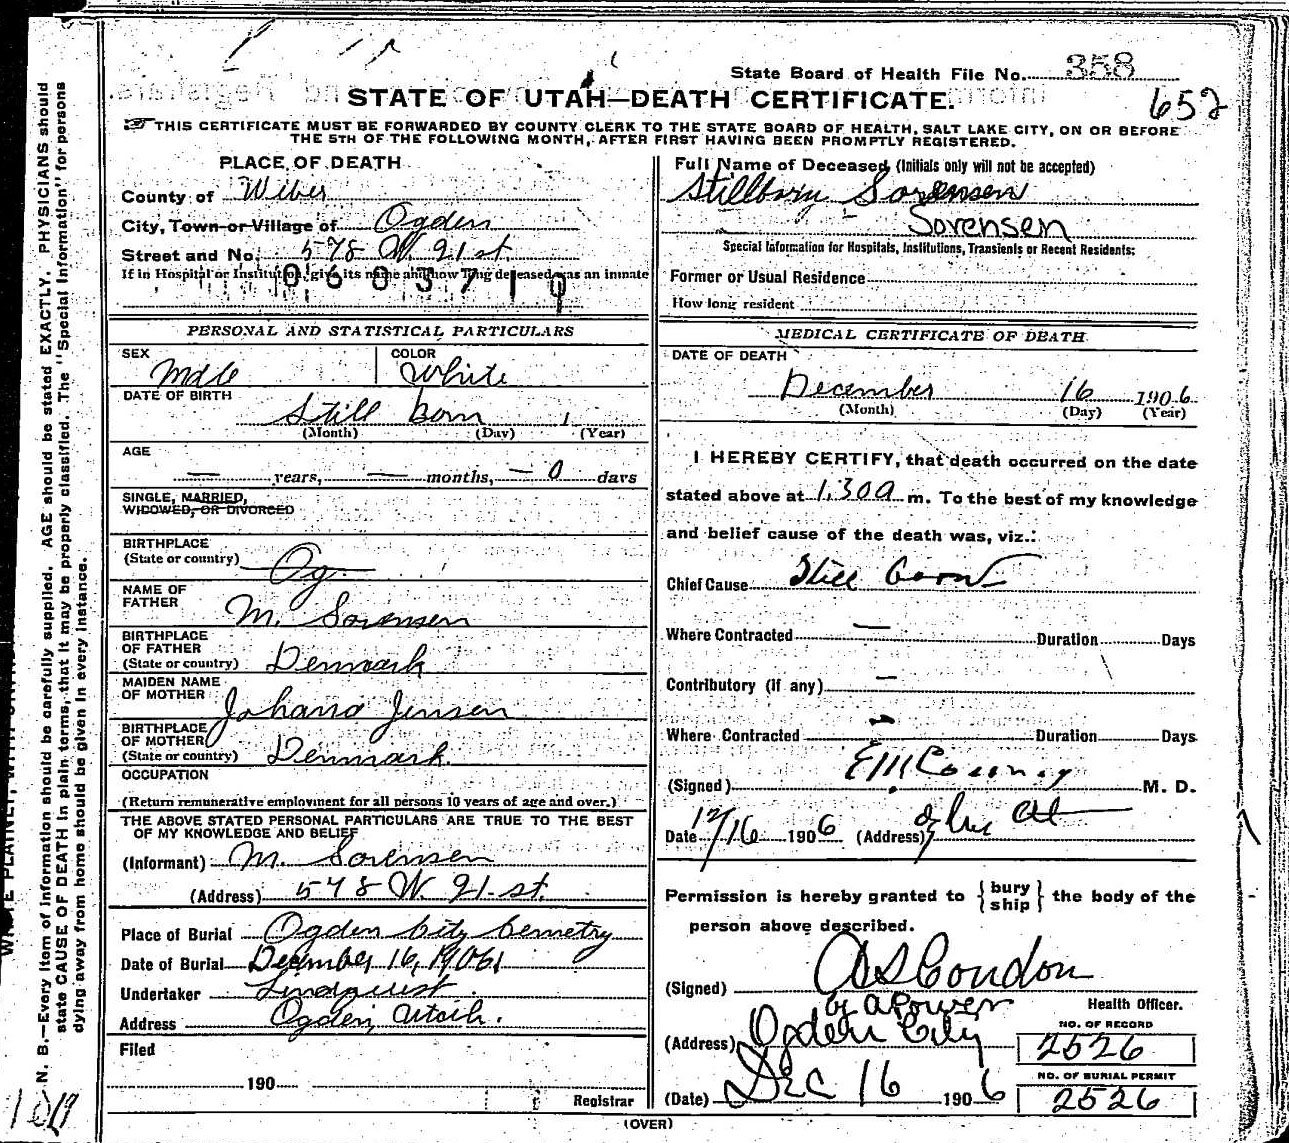 State Board of Health File No. 358
652
STATE OF UTAH—DEATH CERTIFICATE.
THIS CERTIFICATE MUST BE FORWARDED BY COUNTY CLERK TO THE STATE BOARD OF HEALTH, SALT LAKE CITY, ON OR BEFORE
THE 5TH OF THE FOLLOWING MONTH, AFTER FIRST HAVING BEEN PROMPTLY REGISTERED.
PLACE OF DEATH
County of Weber
City, Town or Village of Ogden
Street and No. 578 W. 21 st.
If in Hospital or Institution, give its name and how long deceased was an inmate
0603710
Full Name of Deceased (Initials only will not be accepted)
Stillborn Sorensen
Sorensen
Special Information for Hospitals, Institutions, Transients or Recent Residents:
Former or Usual Residence
How long resident
PERSONAL AND STATISTICAL PARTICULARS
SEX Male
COLOR White
DATE OF BIRTH
Still born
(Month) (Day) (Year)
AGE
— years, — months, — 0 days
SINGLE, MARRIED,
WIDOWED, OR DIVORCED
BIRTHPLACE
(State or country) Og
NAME OF
FATHER M. Sorensen
BIRTHPLACE
OF FATHER
(State or country) Denmark
MAIDEN NAME
OF MOTHER Johana Jensen
BIRTHPLACE
OF MOTHER
(State or country) Denmark.
OCCUPATION
(Return remunerative employment for all persons 10 years of age and over.)
THE ABOVE STATED PERSONAL PARTICULARS ARE TRUE TO THE BEST
OF MY KNOWLEDGE AND BELIEF
(Informant) M. Sorensen
(Address) 578 W. 21. st.
Place of Burial Ogden City Cemetry
Date of Burial December 16, 1906
Undertaker Lindquist
Address Ogden, Utah.
Filed
190
Registrar
MEDICAL CERTIFICATE OF DEATH
DATE OF DEATH
December 16 1906
(Month) (Day) (Year)
I HEREBY CERTIFY, that death occurred on the date
stated above at 1.30a m. To the best of my knowledge
and belief cause of the death was, viz.:
Chief Cause Still born
Where Contracted — Duration Days
Contributory (if any) —
Where Contracted Duration Days
(Signed) M. D.
Date 12/16 1906 (Address)
Permission is hereby granted to { bury
ship } the body of the
person above described.
(Signed) A S Condon
by A Power Health Officer.
(Address) Ogden City
(Date) Dec 16 1906
NO. OF RECORD
2526
NO. OF BURIAL PERMIT
2526
(OVER)
N. B.—Every item of information should be carefully supplied. AGE should be stated EXACTLY. PHYSICIANS should
state CAUSE OF DEATH in plain terms, that it may be properly classified. The "Special Information" for persons
dying away from home should be given in every instance.